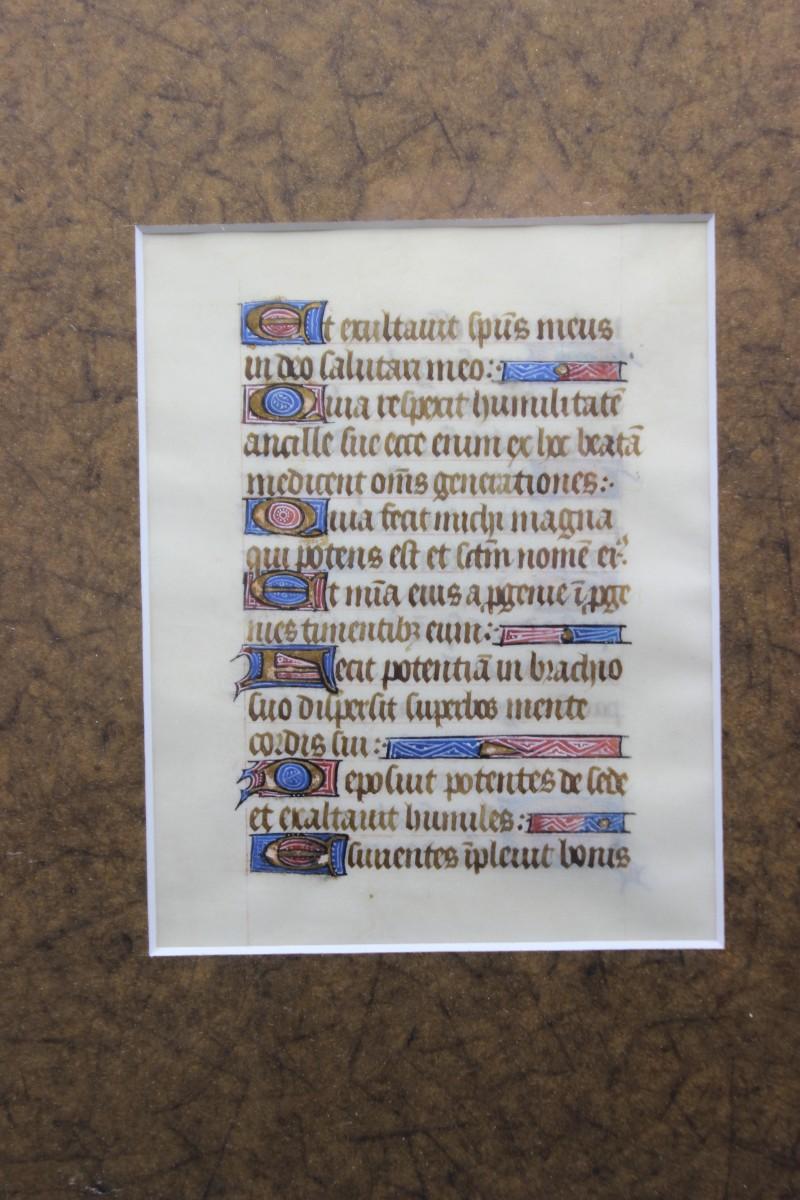 Et exultauit sp̄us meus
in deo salutari meo:
Quia respexit humilitatē
ancille sue ecce enim ex hoc beatā
me dicent om̄s generationes:
Quia fecit michi magna
qui potens est et sctm̄ nomē eiꝰ.
Et mīa eius a ꝓgenie ī ꝓge
nies timentibꝫ eum:
Fecit potentiā in brachio
suo dispersit superbos mente
cordis sui:
Deposuit potentes de sede
et exaltauit humiles:
Esurientes īpleuit bonis